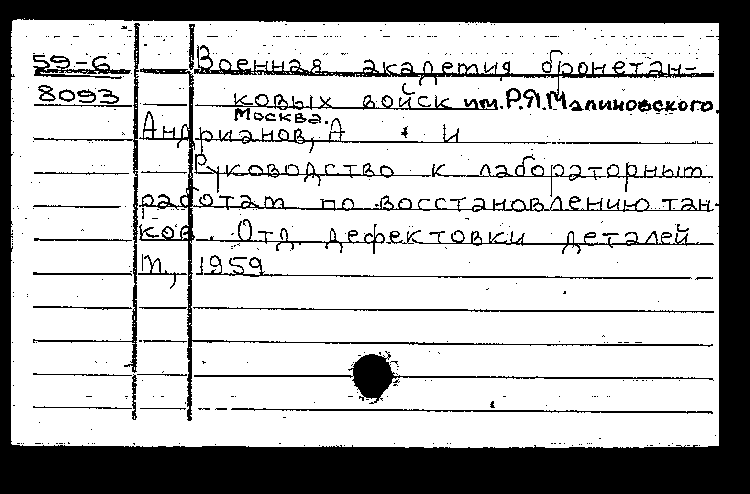 59-6 Военная академия бронетан-
8093 ковых войск им. Р.Я. Малиновского.
Москва.
Андрианов, А И
Руководство к лабораторным
работам по восстановлению тан-
ков. Отд. дефектовки деталей
М., 1959